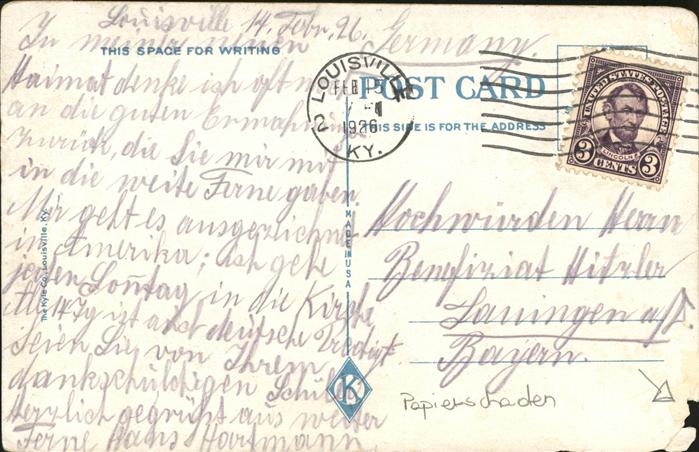 Louisville 14. Febr. 26.
In meiner neuen
Heimat denke ich oft
an die guten Ermahnungen
zurück, die Sie mir mit
in die weite Ferne gaben.
Mir geht es ausgezeichnet
in Amerika; ich gehe
jeden Sonntag in die Kirche
14 Tg ist auch deutsche Predigt.
Seien Sie von Ihrem
dankschuldigen Schüler
Herzlich gegrüßt aus weiter
Ferne Hans Hartmann
THIS SPACE FOR WRITING
The Kyle Co., Louisville, Ky.
MADE IN USA
K
Germany.
POST CARD
THIS SIDE IS FOR THE ADDRESS
LOUISVILLE
FEB 15
1926
KY.
2
UNITED STATES POSTAGE
LINCOLN
3 CENTS 3
Hochwürden Herrn
Benefiziat Hitzler
Lauingen a/D
Bayern.
Papierschaden